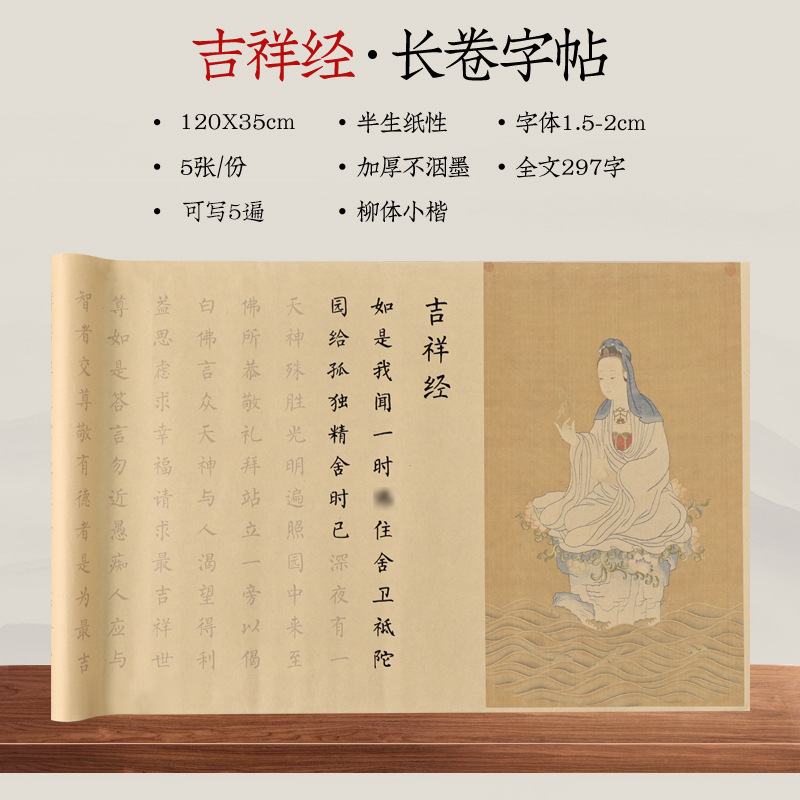 吉祥经·长卷字帖
• 120X35cm
• 半生纸性
• 字体1.5-2cm
• 5张/份
• 加厚不洇墨
• 全文297字
• 可写5遍
• 柳体小楷
吉祥经
如是我闻一时 住舍卫祇陀
园给孤独精舍时已深夜有一
天神殊胜光明遍照园中来至
佛所恭敬礼拜站立一旁以偈
白佛言众天神与人渴望得利
益思虑求幸福请求最吉祥世
尊如是答言勿近愚痴人应与
智者交尊敬有德者是为最吉